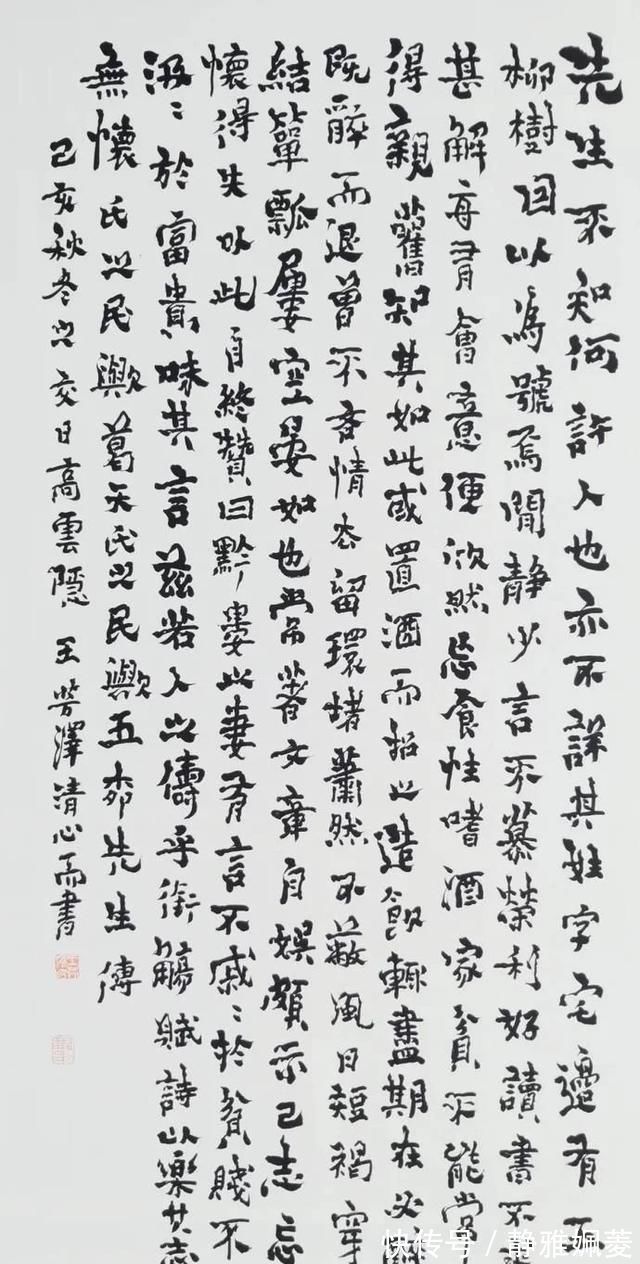 先生不知何許人也亦不詳其姓字宅邊有五
柳樹因以為號焉閒靜少言不慕榮利好讀書不
甚解每有會意便欣然忘食性嗜酒家貧不能常
得親舊知其如此或置酒而招之造飲輒盡期在必
既醉而退曾不吝情去留環堵蕭然不蔽風日短褐穿
結簞瓢屢空晏如也常著文章自娛頗示己志忘
懷得失以此自終贊曰黔婁之妻有言不戚〻於貧賤不
汲〻於富貴味其言茲若人之儔乎銜觴賦詩以樂其志
無懷氏之民歟葛天氏之民歟五柳先生傳
己亥秋冬之交日高雲隱王芳澤清心而書
快传号/静雅姵菱